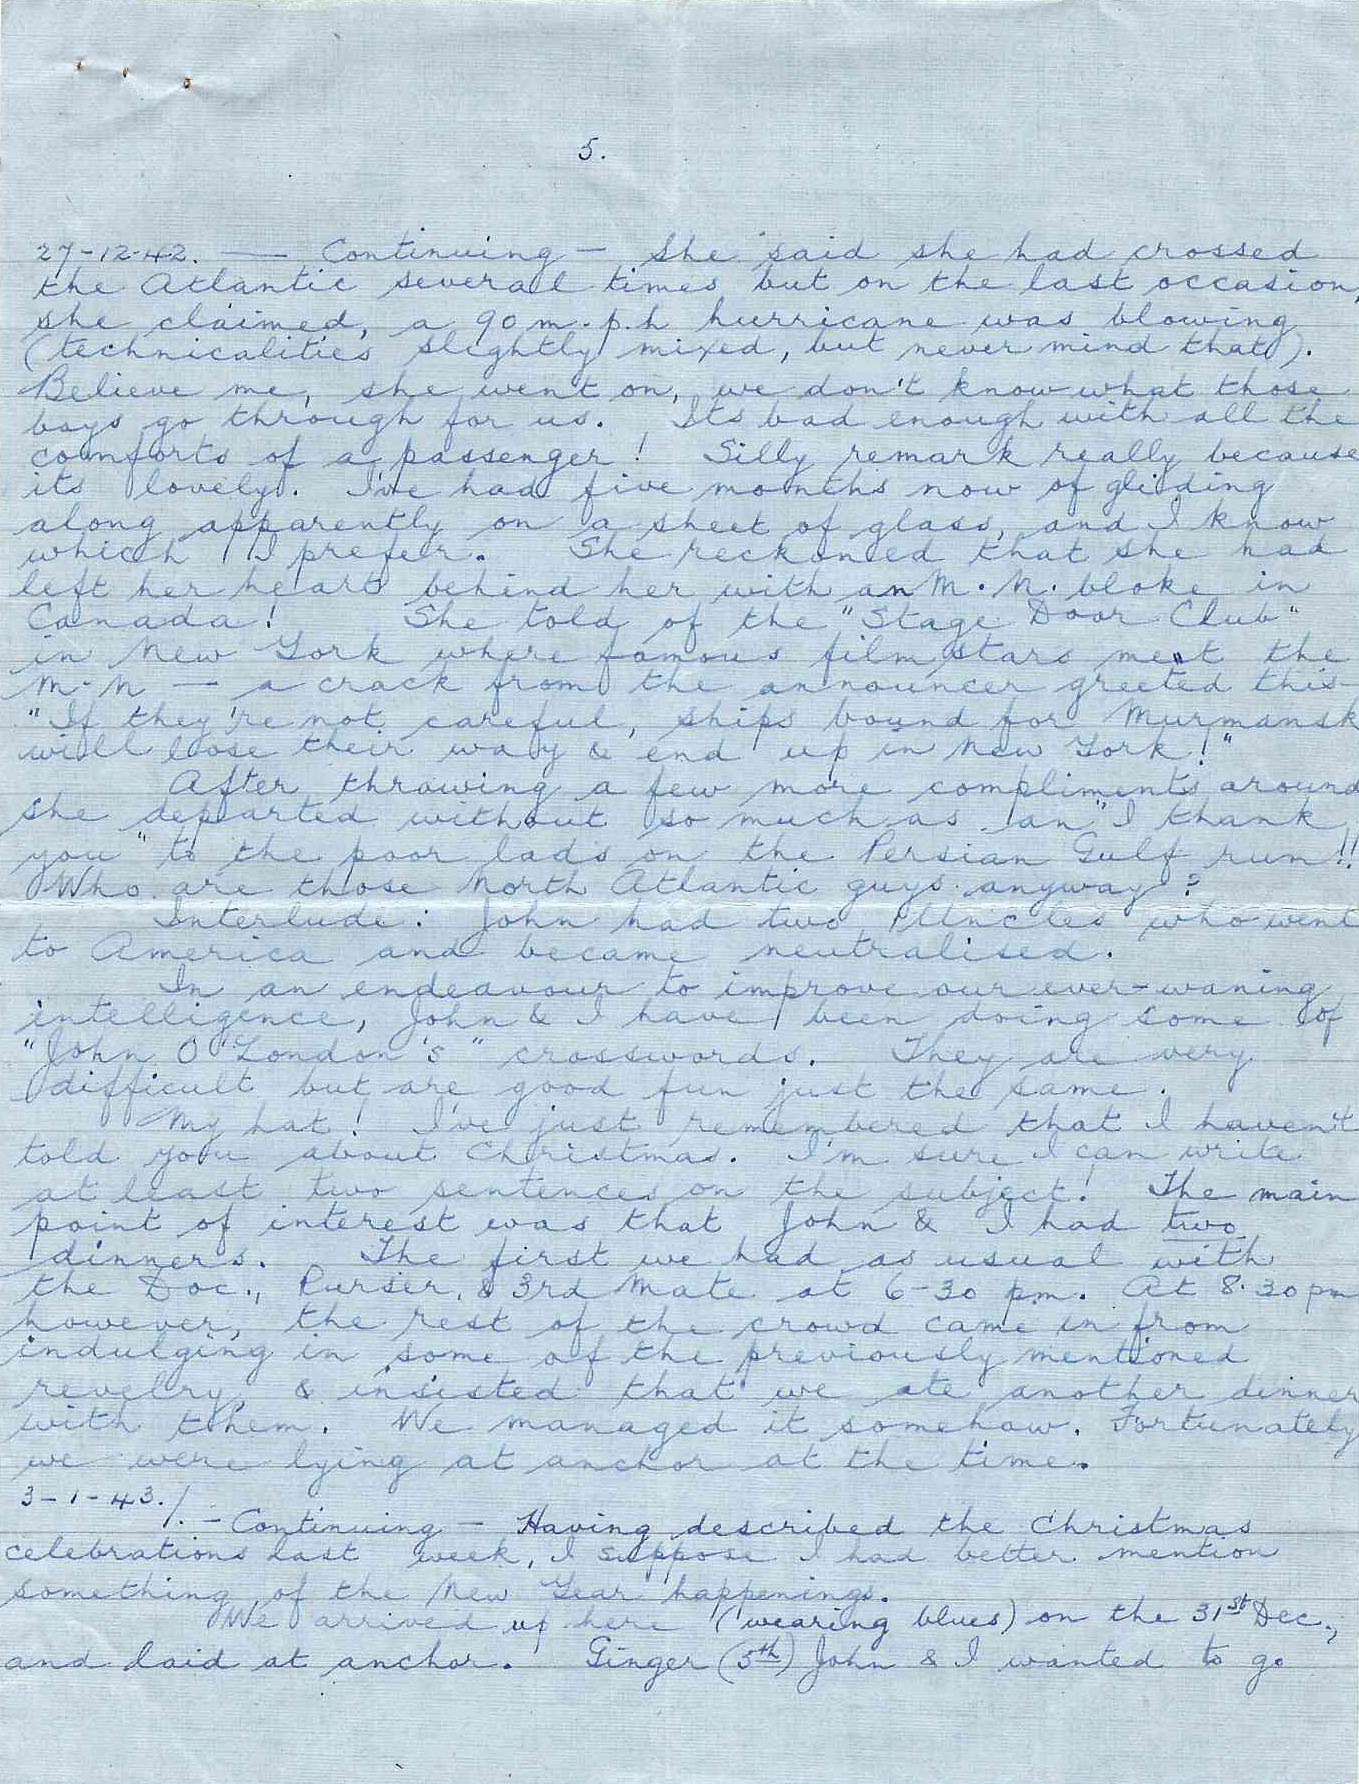 5.
27-12-42. — Continuing — She said she had crossed
the Atlantic several times but on the last occasion,
she claimed, a 90 m.p.h hurricane was blowing
(technicalities slightly mixed, but never mind that).
Believe me, she went on, we don't know what those
boys go through for us. Its bad enough with all the
comforts of a passenger! Silly remark really because
its lovely. I've had five months now of gliding
along apparently on a sheet of glass, and I know
which I prefer. She reckoned that she had
left her heart behind her with an M.N. bloke in
Canada! She told of the "Stage Door Club"
in New York where famous film stars meet the
M.N — a crack from the announcer greeted this-
"If they're not careful, ships bound for Murmansk
will loose their way & end up in New York!"
After throwing a few more compliments around
she departed without so much as an "I thank
you" to the poor lads on the Persian Gulf run!!
Who are those North Atlantic guys anyway?
Interlude: John had two Uncles who went
to America and became neutralised.
In an endeavour to improve our ever-waning
intelligence, John & I have been doing some of
"John O'London's" crosswords. They are very
difficult but are good fun just the same.
My hat! I've just remembered that I haven't
told you about Christmas. I'm sure I can write
at least two sentences on the subject! The main
point of interest was that John & I had two
dinners. The first we had as usual with
the Doc., Purser, & 3rd Mate at 6-30 pm. At 8.30 pm
however, the rest of the crowd came in from
indulging in some of the previously mentioned
revelry, & insisted that we ate another dinner
with them. We managed it somehow. Fortunately
we were lying at anchor at the time.
3-1-43./. - Continuing - Having described the Christmas
celebrations last week, I suppose I had better mention
something of the New Year happenings.
We arrived up here (wearing blues) on the 31st Dec.,
and laid at anchor. Ginger (5th) John & I wanted to go